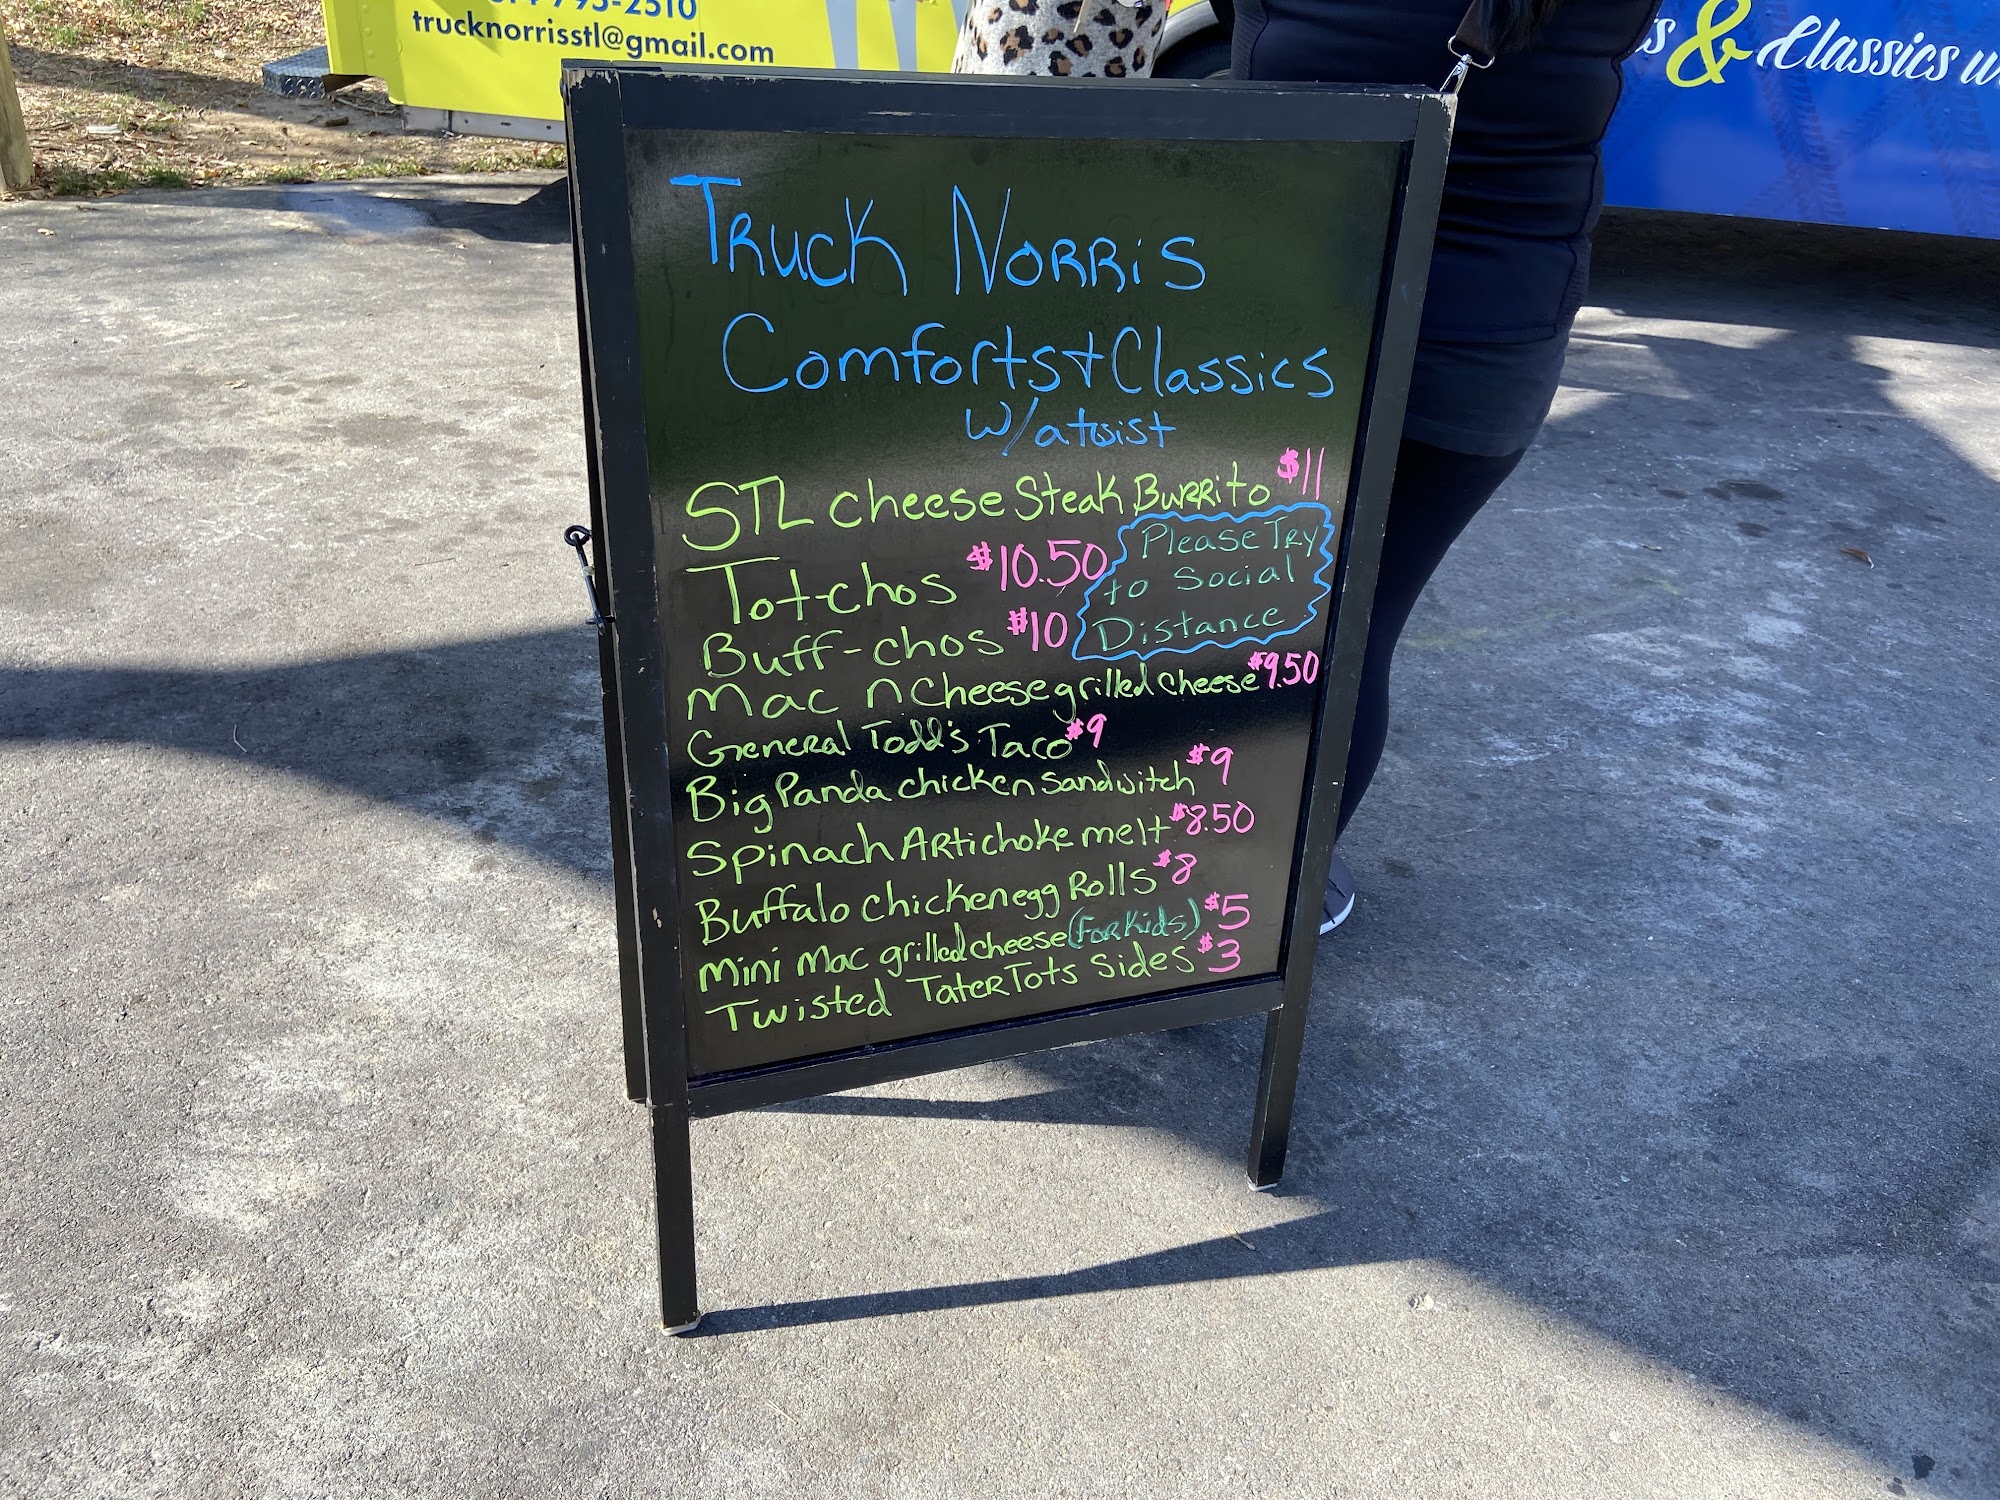 795-2510
trucknorrisstl@gmail.com
& Classics
Truck Norris
Comforts & Classics
w/ a twist
STL cheese Steak Burrito $11
Tot-chos $10.50
Please Try
to Social
Distance
Buff-chos $10
Mac n Cheese grilled cheese $9.50
General Todd's Taco $9
Big Panda chicken sandwitch $9
Spinach Artichoke melt $8.50
Buffalo chicken egg Rolls $8
Mini Mac grilled cheese (For Kids) $5
Twisted Tater Tots Sides $3